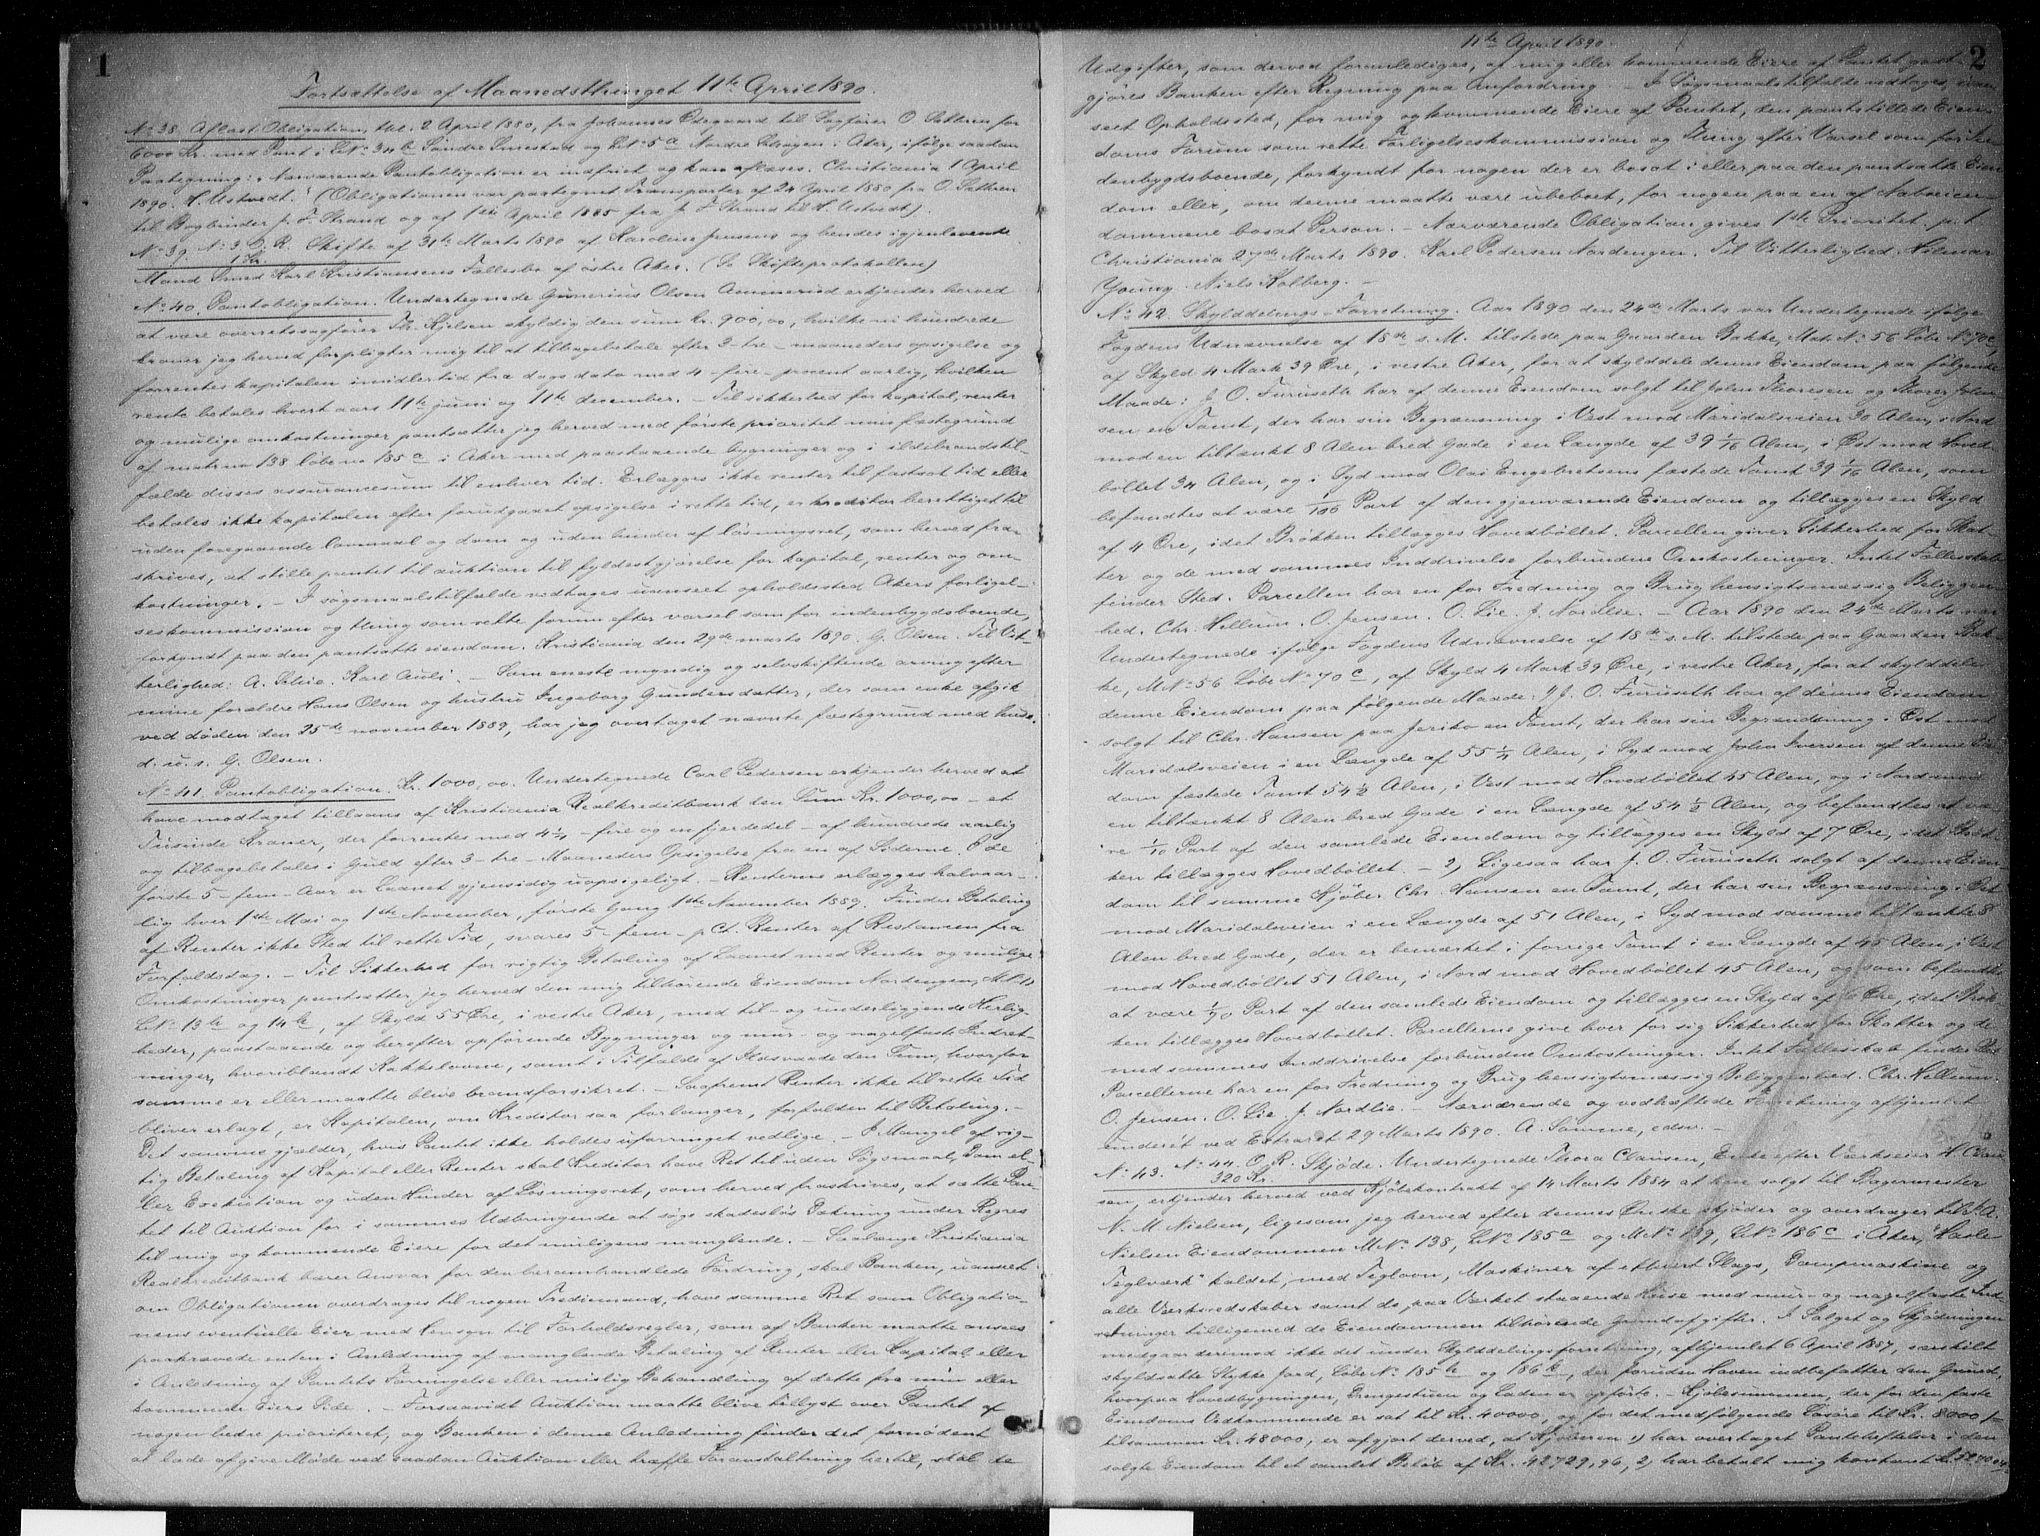 1
Fortsættelse af Maanedsthinget 11te April 1890.
No 38. Aflæst Obligation, dat. 2 April 1880, fra Johannes Ødegaard til Sagfører O. Sattren for
6000 Kr. med Pant i LNo 34 b Søndre Smestad og LNo 5a Nordre Skogen i Aker, ifølge saadan
Paategning: "Nærværende Pantobligation er indfriet og kan aflæses. Christiania 1 April
1890. H. Ustvedt." (Obligationen var paategnet Transporter af 24 April 1880 fra O. Sattren
til Bogbinder J. F. Strand og af 1ste April 1885 fra J. F. Strand til H. Ustvedt).
No 39. No 3. O. R. Skifte af 31te Marts 1890 af Karoline Jensens og hendes igjenlevende
1 Kr.
Mand Smed Karl Kristiansens Fællesbo af østre Aker. (Se Skifteprotokollen)
No 40. Pantobligation. Undertegnede Gunerius Olsen Ammerud erkjender herved
at være overretssagfører Th. Kjelsen skyldig den sum kr. 900,00, hvilke ni hundrede
kroner jeg herved forpligter mig til at tilbagebetale efter 3 - tre - maaneders opsigelse og
forrentes kapitalen imidlertid fra dags dato med 4 - fire - procent aarlig, hvilken
rente betales hvert aars 11te juni og 11te december. - Til sikkerhed for kapital, renter
og mulige omkostninger pantsætter jeg herved med første prioritet min fæstegrund
af matr no 138 løbe no 185a i Aker med paastaaende bygninger og i ildebrandstil-
fælde disses assurancesum til enhver tid. Erlægges ikke renter til fastsat tid eller
betales ikke kapitalen efter forudgaaet opsigelse i rette tid, er kreditor berettiget til
uden foregaaende lovmaal og dom og uden hinder af løsningsret, som herved fra-
skrives, at stille pantet til auktion til fyldestgjørelse for kapital, renter og om-
kostninger. - I søgsmaalstilfælde vedtages uanseet opholdssted Akers forligel-
seskommission og thing som rette forum efter varsel som for indenbygdsboende,
forkyndt paa den pantsatte eiendom. Kristiania den 29de marts 1890. G. Olsen. Til Vit-
terlighed: A. Selie. Karl Auli. - Som eneste myndig og selvskiftende arving efter
mine forældre Hans Olsen og hustru Ingeborg Gundersdatter, der som enke afgik
ved døden den 25de november 1889, har jeg overtaget nævnte fæstegrund med huse.
d. u. s. G. Olsen.
No 41. Pantobligation. Kr. 1000,00. Undertegnede Carl Pedersen erkjender herved at
have modtaget tillaans af Kristiania Realkreditbank den Sum Kr. 1000,00 - et
Tusinde Kroner, der forrentes med 4 1/4 - fire og en fjerdedel - af hundrede aarlig
og tilbagebetales i Guld efter 3 - tre - Maaneders Opsigelse fra en af Siderne. I de
første 5 - fem - Aar er Laanet gjensidig uopsigeligt. - Renterne erlægges halvaar-
lig hver 1ste Mai og 1ste November, første Gang 1ste November 1889. Finder Betaling
af Renter ikke Sted til rette Tid, svares 5 - fem - pCt. Renter af Restancen fra
Forfaldsdag. - Til Sikkerhed for rigtig Betaling af Laanet med Renter og mulige
Omkostninger pantsætter jeg herved den mig tilhørende Eiendom Nordengen, MNo
LNo 13 b og 14 b, af Skyld 55 Øre, i vestre Aker, med til- og underliggende Herlig-
heder, paastaaende og herefter opførende Bygninger og mur- og nagelfaste Indret-
ninger, hvoriblandt Kakkelovne, samt i Tilfælde af Ildsvaade den Sum, hvorfor
samme er eller maatte blive brandforsikret. - Saafremt Renter ikke til rette Tid
bliver erlagt, er Kapitalen, om Kreditor saa forlanger, forfalden til Betaling. -
Det samme gjælder, hvis Pantet ikke holdes uforringet vedlige. - I Mangel af rig-
tig Betaling af Kapital eller Renter skal Kreditor have Ret til uden Søgsmaal, Dom el-
ler Exekution og uden Hinder af Løsningsret, som herved fraskrives, at sætte Pan-
tet til Auktion for i sammes Udbringende at søge skadesløs Dækning under Regres
til mig og kommende Eiere for det muligens manglende. - Saalænge Kristiania
Realkreditbank bærer Ansvar for den heromhandlede Fordring, skal Banken, uanseet
om Obligationen overdrages til nogen Trediemand, have samme Ret som Obligatio-
nens eventuelle Eier med Hensyn til Forholdsregler, som af Banken maatte ansees
paakrævede enten i Anledning af manglende Betaling af Renter eller Kapital eller
i Anledning af Pantets Forringelse eller mislig Behandling af dette fra min eller
kommende Eiers Side. - Forsaavidt Auktion maatte blive tillyst over Pantet af
nogen bedre prioriteret, og Banken i denne Anledning finder det fornødent
at lade afgive Møde ved saadan Auktion eller træffe Foranstaltning hertil, skal de
11te April 1890.
2
Udgifter, som derved foranlediges, af mig eller kommende Eiere af Pantet godt-
gjøres Banken efter Regning paa Anfordring. - I Søgsmaalstilfælde vedtages, uan-
seet Opholdssted, for mig og kommende Eiere af Pantet, den pantstillede Eien-
doms Forum som rette Forligelseskommission og Thing efter Varsel som for In-
denbygdsboende, forkyndt for nogen der er bosat i eller paa den pantsatte Eien
dom eller, om denne maatte være ubeboet, for nogen paa en af Naboeien-
dommene bosat Person. - Nærværende Obligation gives 1ste Prioritet. p. t.
Christiania 27de Marts 1890. Karl Pedersen Nordengen. Til Vitterlighed: Hilmar
Young. Niels Kolberg. -
No 42. Skylddelings-Forretning. Aar 1890 den 24de Marts var Undertegnede ifølge
Fogdens Udnævnelse af 18de s. M. tilstede paa Gaarden Bakke, Mat. No 56 Løbe No 70c,
af Skyld 4 Mark 39 Øre, i vestre Aker, for at skylddele denne Eiendom paa følgende
Maade: J. O. Furuseth har af denne Eiendom solgt til John Thoresen og Thorer John-
sen en Tomt, der har sin Begrænsning i Vest mod Maridalsveien 30 Alen, i Nord
mod en tiltænkt 8 Alen bred Gade i en Længde af 39 1/16 Alen, i Øst mod Hoved-
bøllet 34 Alen, og i Syd mod Olai Engebretsens fæstede Tomt 39 1/16 Alen, som
befandtes at være 1/100 Part af den gjenværende Eiendom og tillægges en Skyld
af 4 Øre, idet Brøkken tillægges Hovedbøllet. Parcellen giver Sikkerhed for Skat-
ter og de med sammes Inddrivelse forbundne Omkostninger. Intet Fællesskab
finder Sted. Parcellen har en for Fredning og Brug hensigtsmæssig Beliggen
hed. Chr. Hellum. O. Jensen. O. Lie. J. Nordlie. - Aar 1890 den 24de Marts var
Undertegnede ifølge Fogdens Udnævnelse af 18de s. M. tilstede paa Gaarden Bak-
ke, MNo 56 Løbe No 70c, af Skyld 4 Mark 39 Øre, i vestre Aker, for at skylddele
denne Eiendom paa følgende Maade: 1) J. O. Furuseth har af denne Eiendom
solgt til Chr. Hansen paa Jeriko en Tomt, der har sin Begrændsning i Øst mod
Maridalsveien i en Længde af 55 1/4 Alen, i Syd mod John Iversen af denne Ei-
dom fæstede Tomt 54 1/2 Alen, i Vest mod Hovedbøllet 45 Alen, og i Nord mod
en tiltænkt 8 Alen bred Gade i en Længde af 54 1/2 Alen, og befandtes at væ
re 1/70 Part af den samlede Eiendom og tillægges en Skyld af 7 Øre, idet Brøk-
ken tillægges Hovedbøllet. - 2) Ligesaa har J. O. Furuseth solgt af denne Eien-
dom til samme Kjøber Chr. Hansen en Tomt, der har sin Begrænsning i Øst
mod Maridalsveien i en Længde af 51 Alen, i Syd mod samme tiltænkte 8
Alen bred Gade, der er bemærket i forrige Tomt i en Længde af 45 Alen, i Vest
mod Hovedbøllet 51 Alen, i Nord mod Hovedbøllet 45 Alen, og som befandtes
at være 1/70 Part af den samlede Eiendom og tillægges en Skyld af 6 Øre, idet Brøk-
ken tillægges Hovedbøllet. Parcellerne give hver for sig Sikkerhed for Skatter og de
med sammes Inddrivelse forbundne Omkostninger. Intet Fællesskab finder Sted.
Parcellerne har en for Fredning og Brug hensigtsmæssig Beliggenhed. Chr. Hellum.
O. Jensen. O. Lie. J. Nordlie. - Nærværende og vedhæftede Forretning afhjemlet
underét ved Extraret 29 Marts 1890. A. Samme, edsv. -
No 43. No 44. O. R. Skjøde. Undertegnede Thora Clausen, Enke efter Værkseier H. Clau
320 Kr.
sen, erkjender herved ved Kjøbekontrakt af 14 Marts 1884 at have solgt til Bagermester
N. M. Nielsen, ligesom jeg herved efter dennes Ønske skjøder og overdrager til A.
Nielsen Eiendommen MNo 138, LNo 185a og MNo 139, LNo 186c i Aker, "Hasle
Teglværk" kaldet, med Teglovn, Maskiner af ethvert Slags, Dampmaskine og
alle Værksredskaber samt de paa Værket staaende Huse med mur- og nagelfaste Ind
retninger tilligemed de Eiendommen tilhørende Grundafgifter. I Salget og Skjødningen
medgaar derimod ikke det under Skylddelingsforretning, afhjemlet 6 April 1887, særskilt
skyldsatte Stykke Jord, Løbe No 185 b og 186 b, der foruden Haven indbefatter den Grund,
hvorpaa Hovedbygningen, Drengestuen og Laden er opført. - Kjøbesummen, der for den faste
Eiendoms Vedkommende er sat til Kr. 40000, og for det medfølgende Løsøre til Kr. 8000 1-
tilsammen Kr. 48000, er afgjort derved, at Kjøberen 1) har overtaget Pantehæftelser i den
solgte Eiendom til et samlet Beløb af Kr. 42729,96, 2) har betalt mig kontant Kr. 5270,04